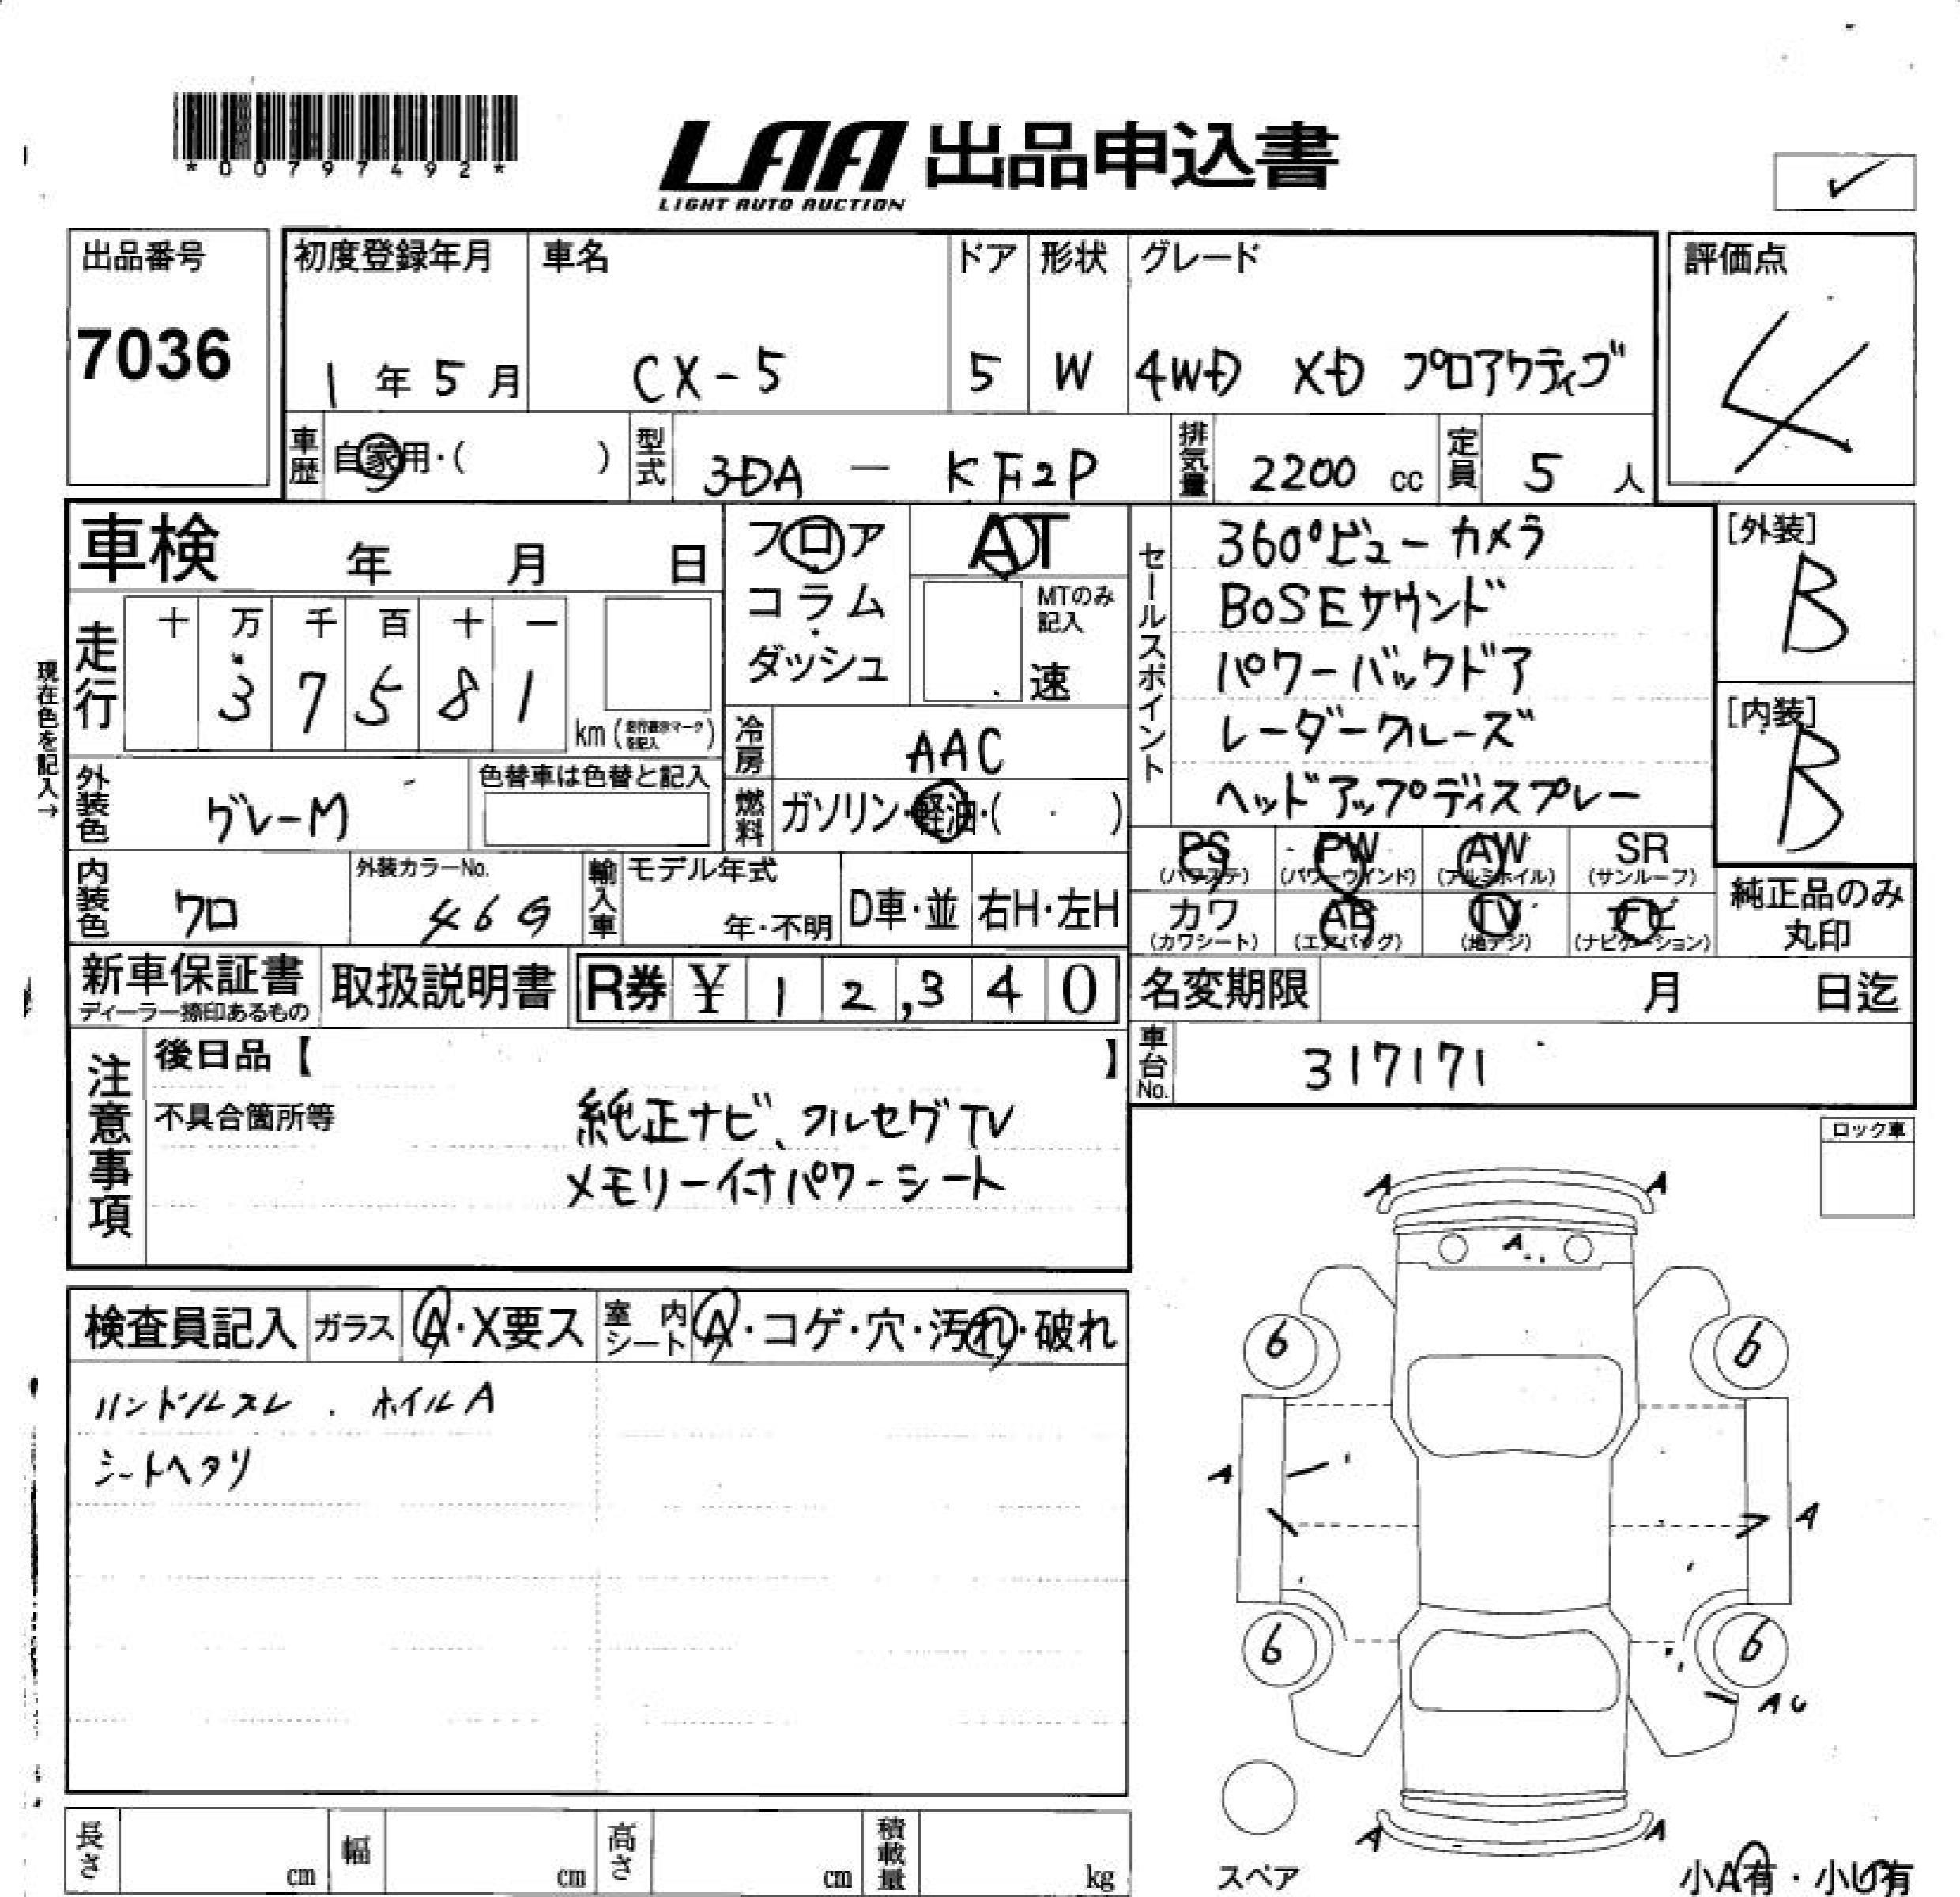 *00797492*
LAA 出品申込書
LIGHT AUTO AUCTION
✓
出品番号
7036
初度登録年月
1年5月
車名
CX-5
ドア
5
形状
W
グレード
4WD XD プロアクティブ
評価点
4
車歴
自家用・( )
型式
3DA - KF2P
排気量
2200 cc
定員
5 人
車検 年 月 日
フロア
コラム
・
ダッシュ
AT
MTのみ
記入
速
セールスポイント
360°ビューカメラ
BOSEサウンド
パワーバックドア
レーダークルーズ
ヘッドアップディスプレー
[外装]
B
[内装]
B
現在色を記入→
走行
十 万 千 百 十 一
3 7 5 8 1
km (走行表示マークを記入)
冷房
AAC
外装色
グレーM
色替車は色替と記入
燃料
ガソリン・軽油・( ・ )
PS
(パワステ)
PW
(パワーウインド)
AW
(アルミホイル)
SR
(サンルーフ)
カワ
(カワシート)
AB
(エアバッグ)
TV
(地デジ)
ナビ
(ナビゲーション)
純正品のみ
丸印
内装色
クロ
外装カラーNo.
46G
輸入車
モデル年式
年・不明
D車・並
右H・左H
新車保証書
ディーラー捺印あるもの
取扱説明書
R券 ¥ 1 2,3 4 0
名変期限 月 日迄
車台No.
317171
注意事項
後日品【 】
不具合箇所等
純正ナビ、フルセグTV
メモリー付パワーシート
ロック車
検査員記入
ガラス
A・X要ス
室内シート
A・コゲ・穴・汚れ・破れ
ハンドルスレ . ホイルA
シートヘタリ
A A
A
6 6
A
A
6 6
AU
A A
スペア
小A有・小U有
長さ cm
幅 cm
高さ cm
積載量 kg